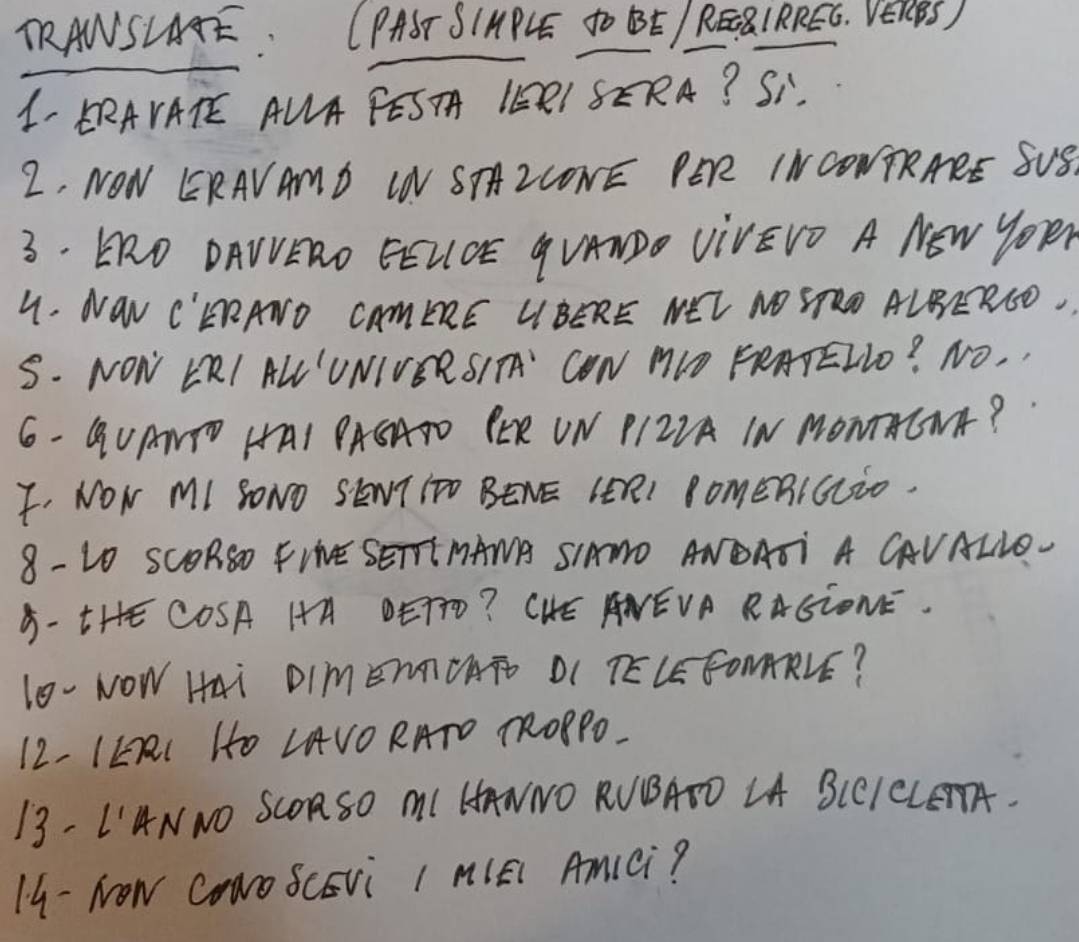 TRANSLATE : (PAST SIMPLE TO BE / REG&IRREG. VERBS)
1- ERAVATE ALLA FESTA IERI SERA? SÌ.
2. NON ERAVAMO IN STAZIONE PER INCONTRARE SUS
3. ERO DAVVERO FELICE QUANDO VIVEVO A NEW YORK
4. NON C'ERANO CAMERE LIBERE NEL NOSTRO ALBERGO.
5. NON ERI ALL'UNIVERSITA' CON MIO FRATELLO? NO..
6- QUANTO HAI PAGATO PER UN PIZZA IN MONTAGNA?
7. NON MI SONO SENTITO BENE IERI POMERIGGIO.
8- LO SCORSO FINE SETTIMANA SIAMO ANDATI A CAVALLO.
9- CHE COSA HA DETTO? CHE AVEVA RAGIONE.
10- NON HAI DIMENTICATO DI TELEFONARLE?
12- IERI HO LAVORATO TROPPO.
13- L'ANNO SCORSO MI HANNO RUBATO LA BICICLETTA.
14- NON CONOSCEVI I MIEI AMICI?